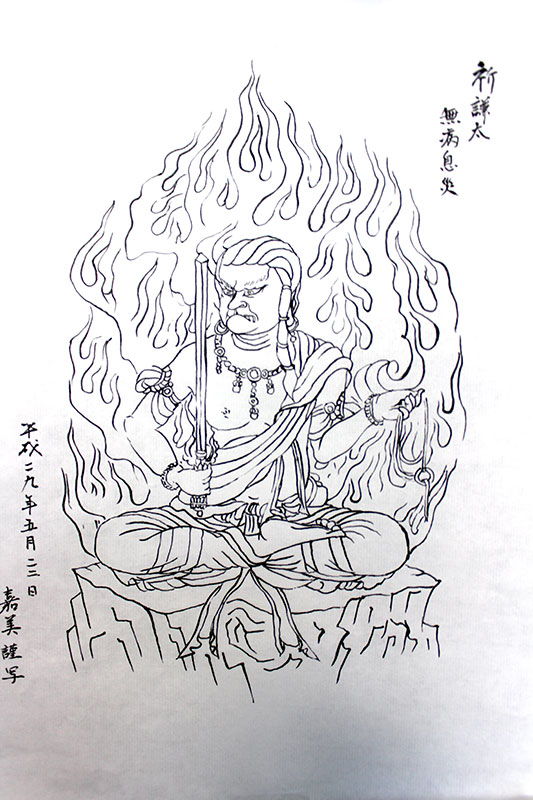 祈謙太
無病息災
平成二九年五月二三日
嘉美謹写